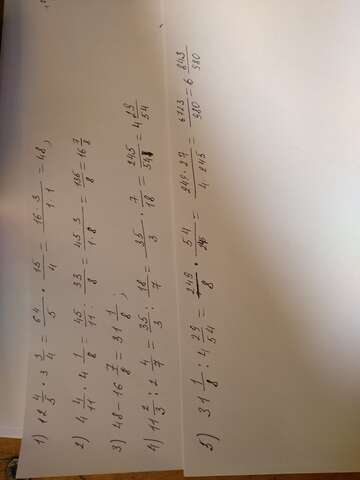 1) 12 4/5 · 3 3/4 = 64/5 · 15/4 = 16 3/1·1 = 48,
2) 4 4/11 · 4 1/8 = 45/11 : 33/8 = 45 3/1·8 = 135/8 = 16 7/8
3) 48 - 16 7/8 = 31 1/8 ;
4) 11 2/3 : 2 4/7 = 35/3 : 18/7 = 35/3 · 7/18 = 245/54 = 4 29/54
5) 31 1/8 : 4 29/54 = 249/8 · 54/245 = 249·27/4·245 = 6723/980 = 6 843/980